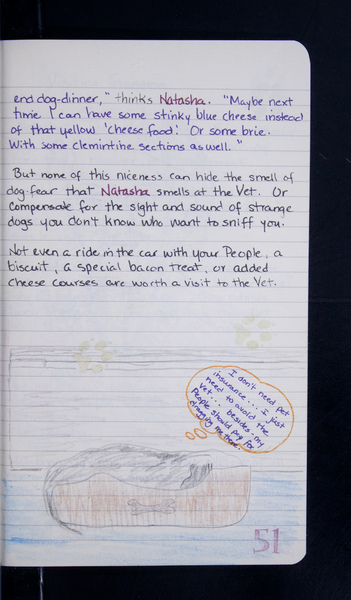 end dog-dinner," thinks Natasha. "Maybe next
time I can have some stinky blue cheese instead
of that yellow 'cheese food.' Or some brie.
With some clemintine sections as well."
But none of this niceness can hide the smell of
dog-fear that Natasha smells at the Vet. Or
compensate for the sight and sound of strange
dogs you don't know who want to sniff you.
Not even a ride in the car with your People, a
biscuit, a special bacon treat, or added
cheese courses are worth a visit to the Vet.
I don't need pet
insurance... I just
need to avoid the
Vet... besides my
People should pay for
dragging me there!
51